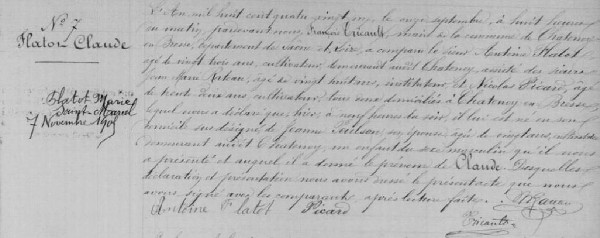 N° 7
Flatot Claude
Flatot Marié
Saint-Marcel
7 Novembre 1908
L'An mil huit cent quatre vingt, le onze septembre, à huit heures
du matin, pardevant nous, François Tricault, maire de la commune de Chatenoy
en Bresse, département de Saone et Loire, a comparu le sieur Antoine Flatot
agé de vingt trois ans, cultivateur, demeurant audit Chatenoy, assisté des sieurs
Jean Marie, agé de vingt huit ans, instituteur et Nicolas Picard, agé
de trente deux ans, cultivateur, tous deux domiciliés à Chatenoy en Bresse
lequel nous a déclaré que hier, à neuf heures du soir, il lui est né en son
domicile sus désigné de Jeanne, son épouse, agée de vingt ans,
demeurant audit Chatenoy, un enfant du sexe masculin qu'il nous
a présenté et auquel il a donné le prénom de Claude. Desquelles
déclaration et présentation nous avons dressé le présent acte que nous
avons signé avec les comparants, après lecture faite.
Antoine Flatot Picard
Tricault